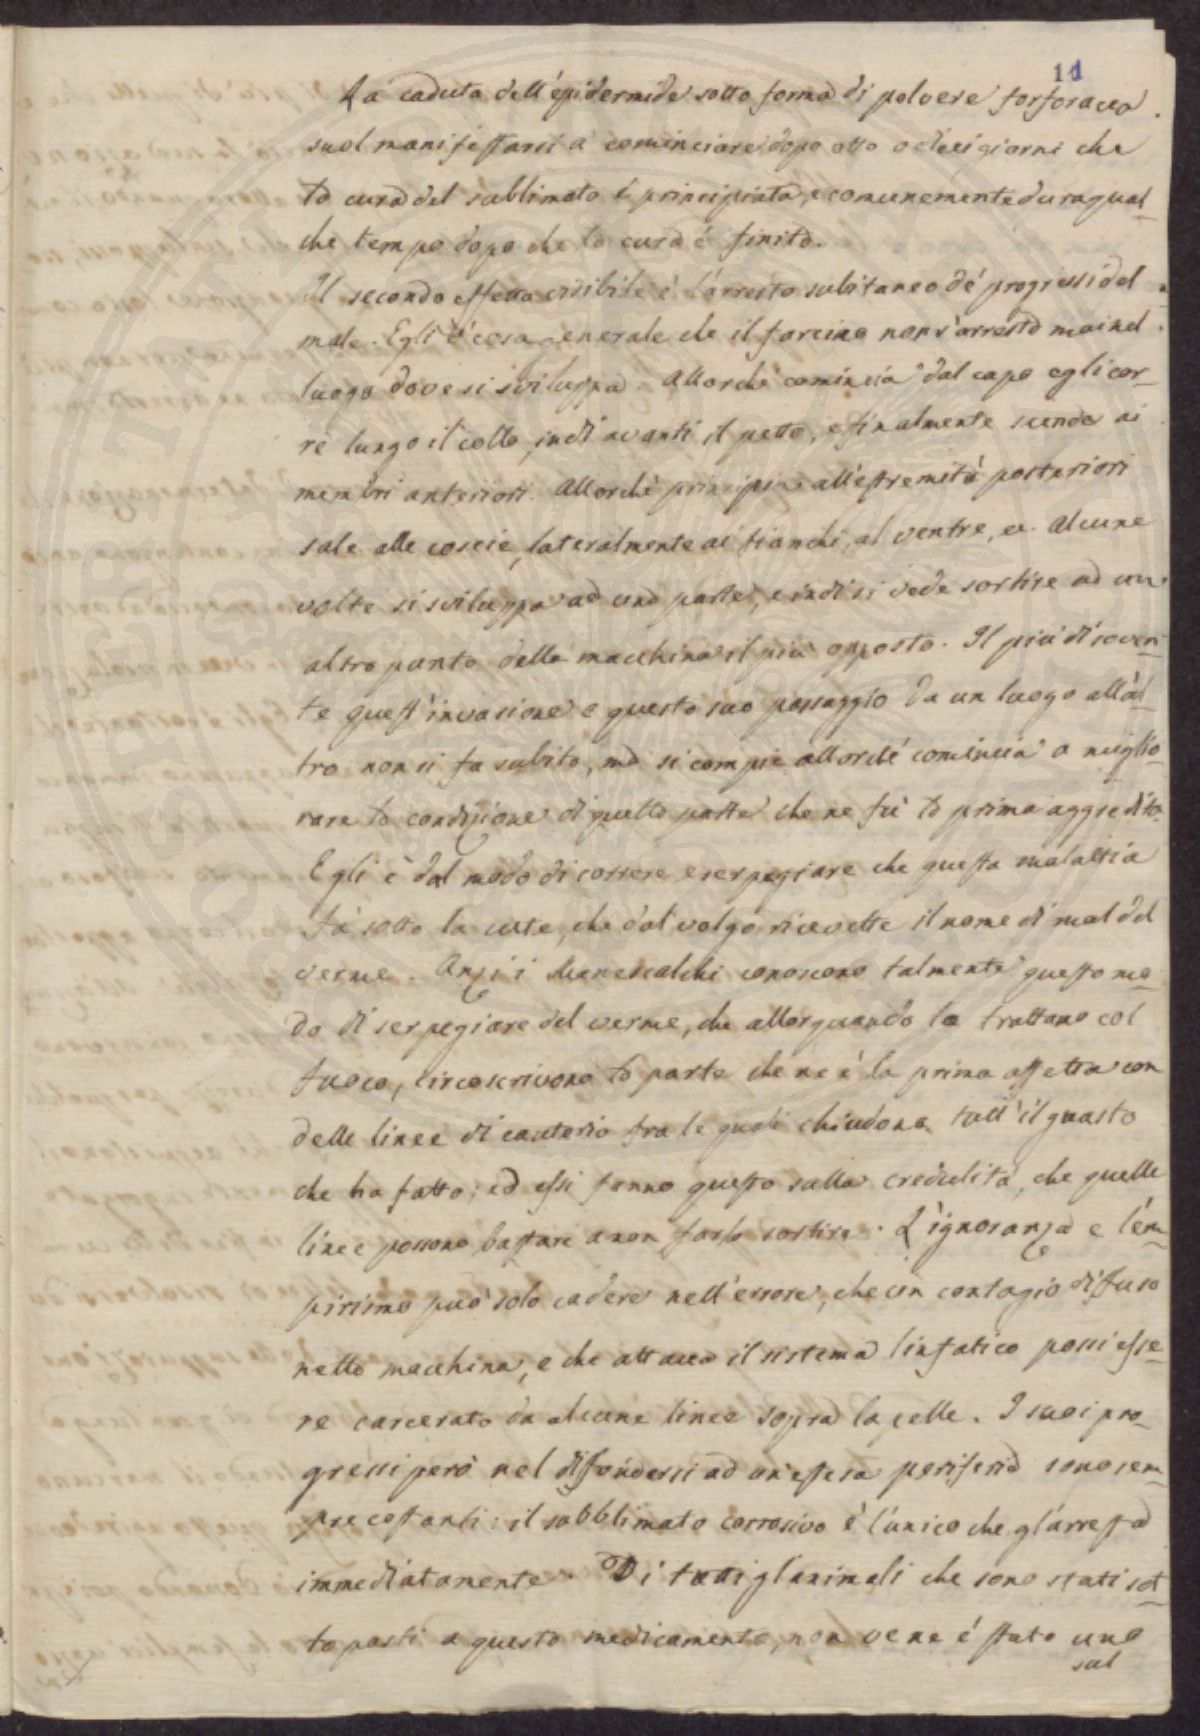 11
La caduta dell'epidermide sotto forma di polvere forforacea
suol manifestarsi a cominciare dopo otto o dieci giorni che
la cura del sublimato è principiata, e comunemente dura qual-
che tempo dopo che la cura è finita.
Il secondo effetto visibile è l'arresto subitaneo de' progressi del
male. Egli è cosa generale che il farcino non s'arresta mai nel
luogo dove si sviluppa. Allorchè comincia dal capo egli cor-
re lungo il collo, indi avanti il petto, e finalmente scende ai
membri anteriori. Allorchè principia all'estremità posteriori
sale alle coscie, lateralmente ai fianchi, al ventre, ec. Alcune
volte si sviluppa ad una parte, e indi si vede sortire ad un
altro punto della macchina il più opposto. Il più di soven-
te quest'invasione e questo suo passaggio da un luogo all'al-
tro non si fa subito, ma si compie allorchè comincia a miglio-
rare la condizione di quella parte che ne fù la prima aggredita.
Egli è dal modo di correre e serpegiare che questa malattia
fà sotto la cute, che dal volgo ricevette il nome di mal del
verme. Anzi i Maniscalchi conoscono talmente questo mo-
do di serpegiare del verme, che allorquando lo trattano col
fuoco, circoscrivono la parte che ne è la prima affetta con
delle linee di cauterio fra le quali chiudono tutt'il guasto
che ha fatto; ed essi fanno questo sulla credulità, che quelle
linee possono bastare a non farlo sortire. L'ignoranza e l'em-
pirismo può solo cadere nell'errore, che un contagio diffuso
nella macchina, e che attacca il sistema linfatico possi esse-
re carcerato da alcune linee sopra la pelle. I suoi pro-
gressi però nel diffondersi ad un'estesa periferia sono sem-
pre costanti: il sobblimato corrosivo è l'unico che gl'arresta
immediatamente. Di tutti gl'animali che sono stati sot-
to posti a questo medicamento, non ve ne è stato uno
sol